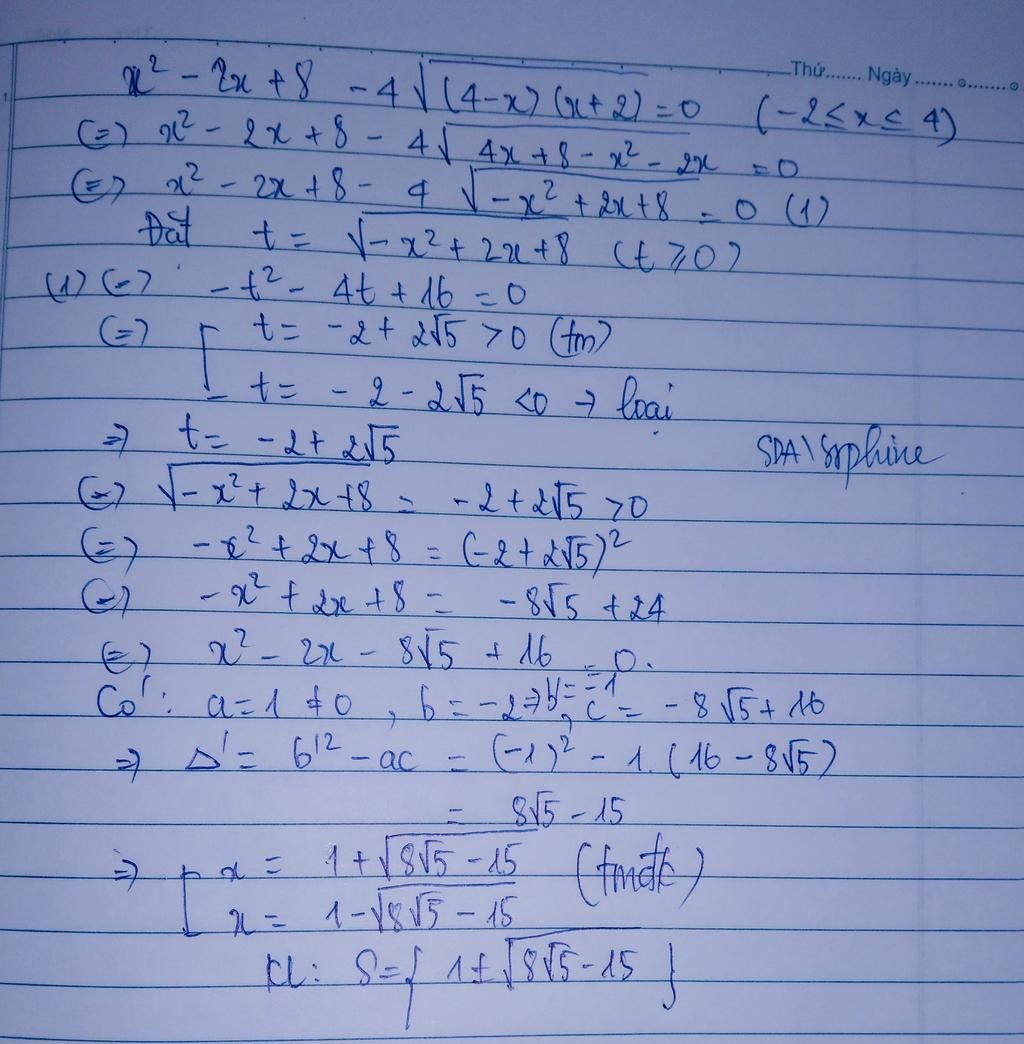 Thứ....... Ngày.......
x² - 2x + 8 - 4√((4-x)(x+2)) = 0 (-2 ≤ x ≤ 4)
(=) x² - 2x + 8 - 4√(4x + 8 - x² - 2x) = 0
(=) x² - 2x + 8 - 4√(-x² + 2x + 8) = 0 (1)
Đặt t = √(-x² + 2x + 8) (t ≥ 0)
(1) (=) -t² - 4t + 16 = 0
(=) [ t = -2 + 2√5 > 0 (tm)
t = -2 - 2√5 < 0 → loại
=> t = -2 + 2√5
SDA\
(=) √(-x² + 2x + 8) = -2 + 2√5 > 0
(=) -x² + 2x + 8 = (-2 + 2√5)²
(=) -x² + 2x + 8 = -8√5 + 24
(=) x² - 2x - 8√5 + 16 = 0.
Có: a = 1 ≠ 0, b = -2 => b' = -1, c = -8√5 + 16
=> Δ' = b'² - ac = (-1)² - 1.(16 - 8√5)
= 8√5 - 15
=> [ x = 1 + √(8√5 - 15) (tmđk)
x = 1 - √(8√5 - 15)
KL: S = { 1 ± √(8√5 - 15) }